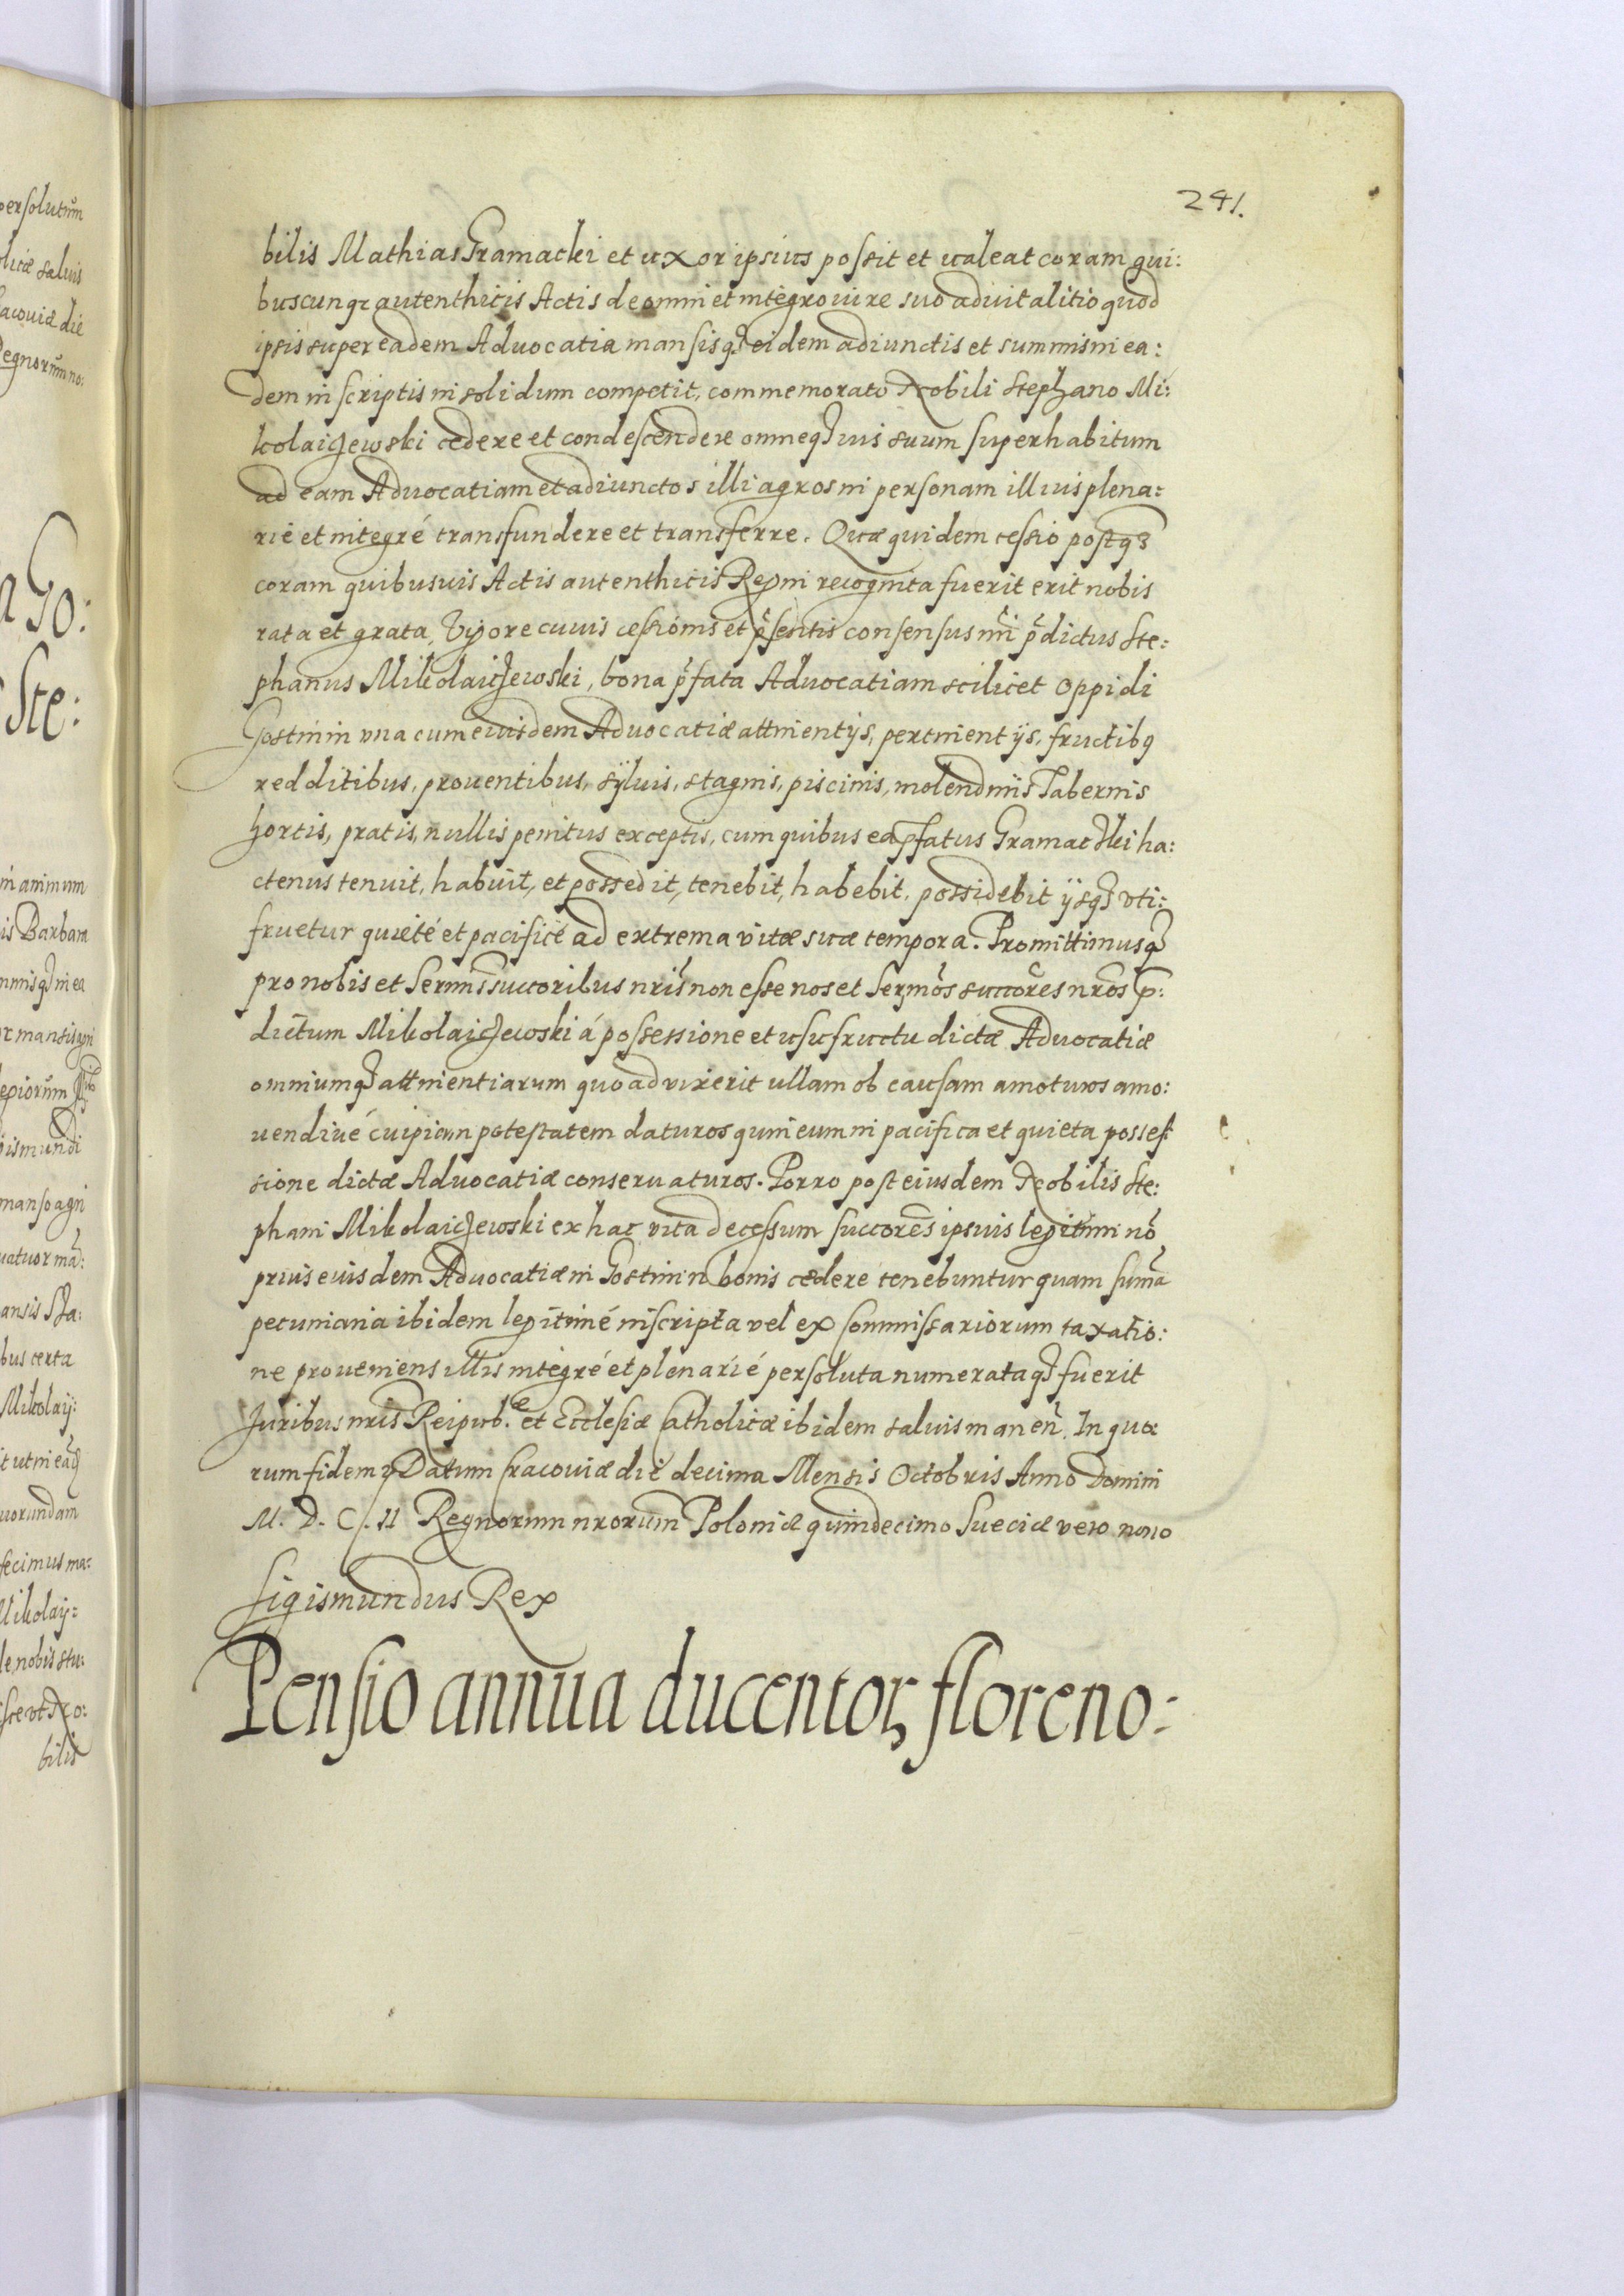 241.
bilis Mathias Gramacki et uxor ipsius possit et ualeat coram qui:
buscunqз autenthicis Actis de omni et integro iure suo aduitalitio quod
ipsis super eadem Aduocatia mansisqз eidem adiunctis et summis in ea:
dem inscriptis in solidum competit, commemorato Nobili Stephano Mi:
kolaiczewski cedere et condescendere omneqз ius suum superhabitum
ad eam Aduocatiam et adiunctos illi agros in personam illius plena:
rie et integré transfundere et transferre. Quæ quidem cessio postqз
coram quibusuis Actis autenthicis Regni recognita fuerit erit nobis
rata et grata, Vigore cuius cessionis et p̃sentis consensus nr̃i p̃dictus Ste:
phanus Mikolaiczewski, bona p̃fata Aduocatiam scilicet oppidi
Gostinin una cum eiusdem Aduocatiæ attinentijs, pertinentijs, fructibꝯ
redditibus, prouentibus, syluis, stagnis, piscinis, molendinis Tabernis
hortis, pratis, nullis penitus exceptis, cum quibus ea p̃fatus Gramaczki ha:
ctenus tenuit, habuit, et possedit, tenebit, habebit, possidebit ijsqз uti:
fruetur quieté et pacificé ad extrema vitæ suæ tempora. Promittimusqз
pro nobis et Sermis succoribus nris̃ non esse nos et Serm̃os succores̃ nros̃ p̃:
dictum Mikolaiczewski á possessione et usufructu dictæ Aduocatiæ
omniumqз attinentiarum quoad vixerit ullam ob causam amoturos amo:
uendiué cuipiam potestatem daturos quin eum in pacifica et quieta posses
sione dictæ Aduocatiæ conseruaturos. Porro post eiusdem Nobilis Ste:
phani Mikolaiczewski ex hac vita decessum succores̃ ipsius legitimi nõ
prius eiusdem Aduocatiæ in Gostinin bonis cædere tenebuntur quam sum̃a
pecuniaria ibidem legitimé inscripta vel ex Commissariorum taxatio:
ne proueniens illis integré et plenarié persoluta numerataqз fuerit
Juribus nris̃ Reipub.æ et Ecclesiæ Catholicæ ibidem saluis manen̄. In quo
rum fidem Datum Cracouiæ die decima Mensis Octobris Anno Domini
M. D. C. II Regnorum nrorum̃ Poloniæ quindecimo Sueciæ vero nono
Sigismundus Rex
Pensio annua ducentoꝝ floreno: